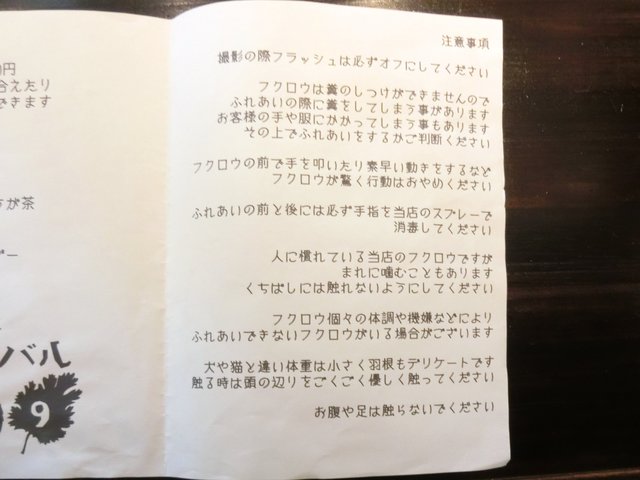 0円
合えたり
できます
が茶
バル
9
注意事項
撮影の際フラッシュは必ずオフにしてください
フクロウは糞のしつけができませんので
ふれあいの際に糞をしてしまう事があります
お客様の手や服にかかってしまう事もあります
その上でふれあいをするかご判断ください
フクロウの前で手を叩いたり素早い動きをするなど
フクロウが驚く行動はおやめください
ふれあいの前と後には必ず手指を当店のスプレーで
消毒してください
人に慣れている当店のフクロウですが
まれに噛むこともあります
くちばしには触れないようにしてください
フクロウ個々の体調や機嫌などにより
ふれあいできないフクロウがいる場合がございます
犬や猫と違い体重は小さく羽根もデリケートです
触る時は頭の辺りをごくごく優しく触ってください
お腹や足は触らないでください